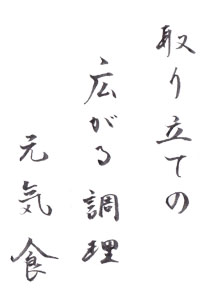 取り立ての
広がる調理
元気食